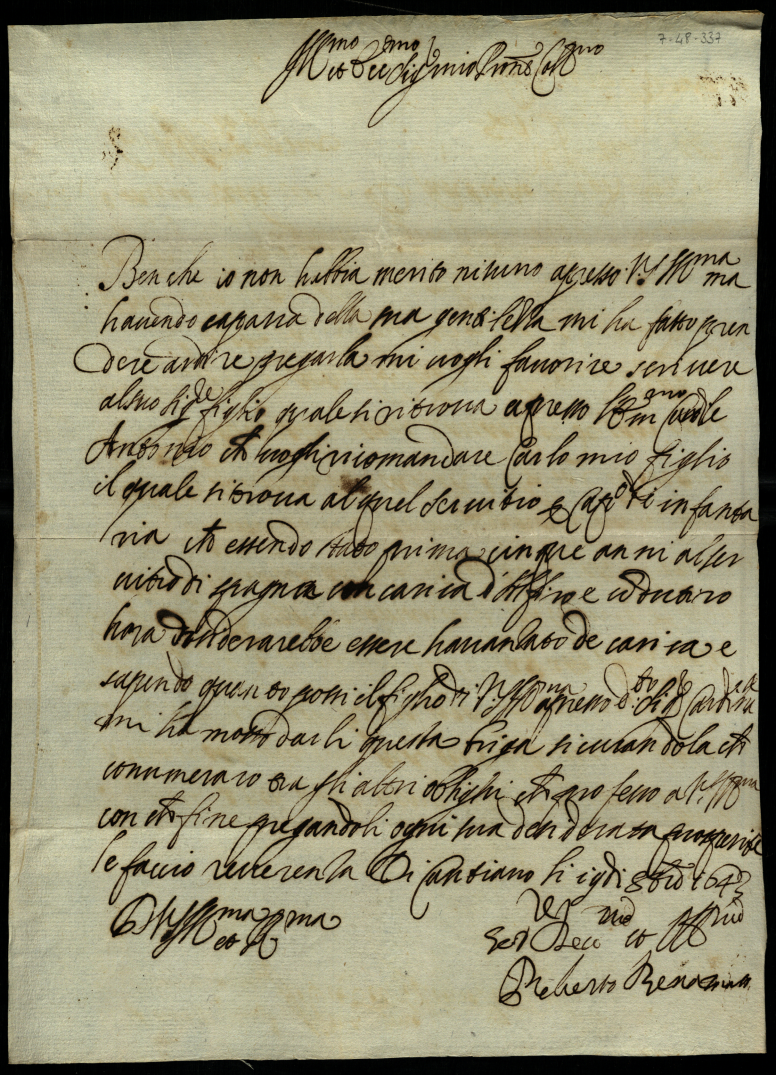 7-48-337
Ill.mo et Ecc.mo Sig.r mio Pron.e Coll.mo
Ben che io non habbia merito nisuno apresso V.S. Ill.ma
havendo caparra della sua gentilezza mi ha fatto pren
dere ardire pregarla mi vogli favorire scrivere
al suo Sig.re figlio quale si ritrova apresso l'Em.mo Card.le
Antonio et vogli ricomandare Carlo mio figlio
il quale si trova al quel servitio Cap.o di infanta
ria et essendo stato prima cinque anni al ser
vitio di spagna con carica d'Alfiero e
hora desiderarebbe essere havantato de carica e
sapendo quanto possi il figlio di V.S. Ill.ma apresso d.to Sig.re Cardinale
mi ha mosso darli questa briga sicurandola che
connumeraro tra gli altri oblighi che professo a V.S. Ill.ma
con che fine pregandoli ogni sua desiderata prosperità
le faccio reverenza Di Cantiano li 19 di 8bre 1643
D V.S. Ill.ma et R.ma
Ser.
Roberto